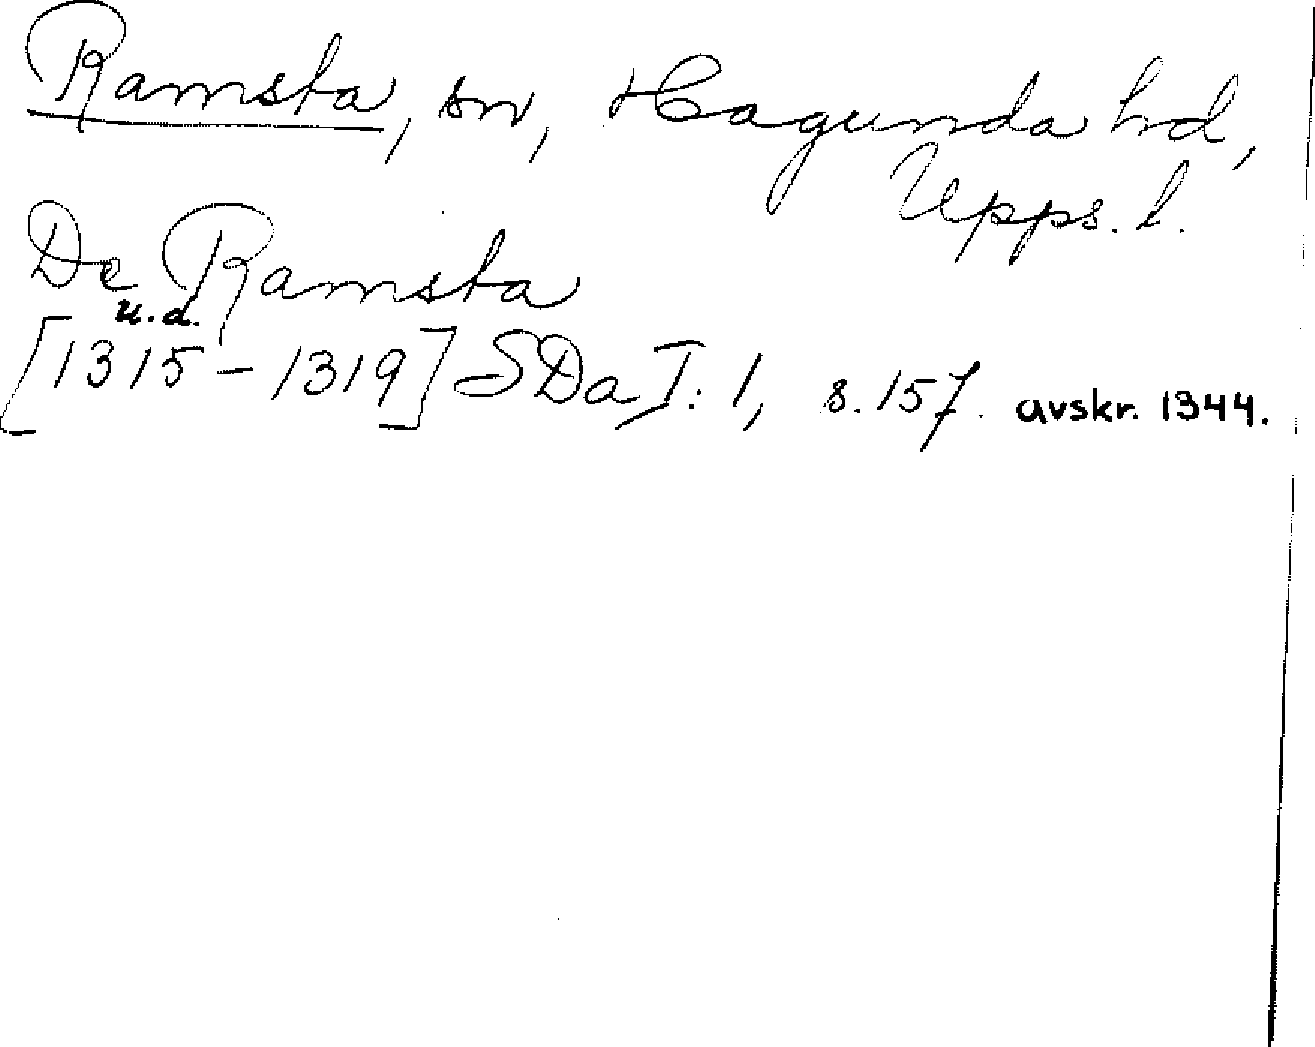 Ramsta, sn, Hagunda hd,
Upps. l.
De Ramsta
u.d.
[1315-1319] SDa I: 1, s. 157. avskr. 1344.